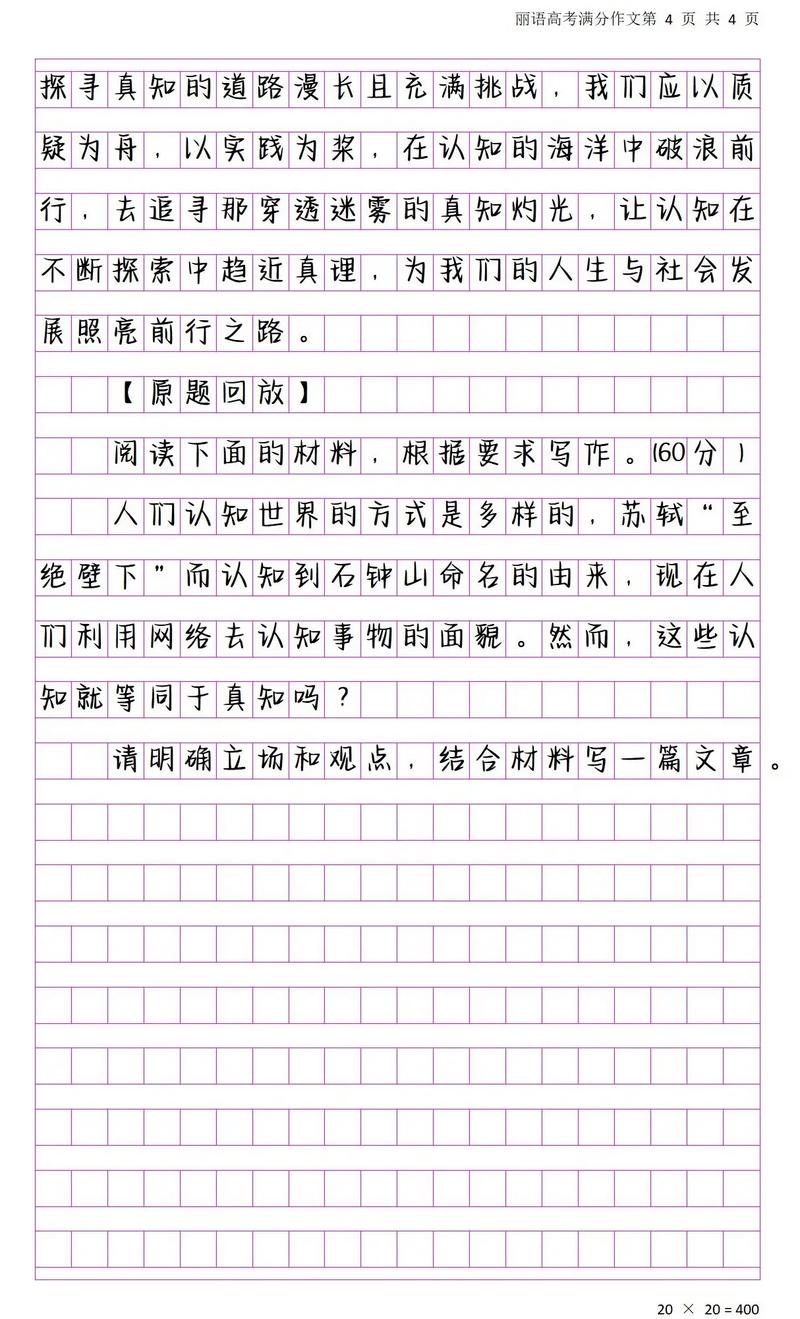 丽语高考满分作文第 4 页 共 4 页
探寻真知的道路漫长且充满挑战，我们应以质
疑为舟，以实践为桨，在认知的海洋中破浪前
行，去追寻那穿透迷雾的真知灼光，让认知在
不断探索中趋近真理，为我们的人生与社会发
展照亮前行之路。
【原题回放】
阅读下面的材料，根据要求写作。(60分)
人们认知世界的方式是多样的，苏轼“至
绝壁下”而认知到石钟山命名的由来，现在人
们利用网络去认知事物的面貌。然而，这些认
知就等同于真知吗？
请明确立场和观点，结合材料写一篇文章。
20 × 20 = 400